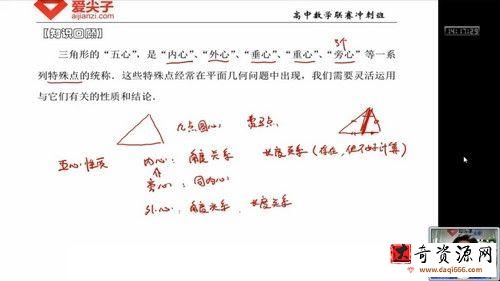 爱尖子
aijianzi.com
高中数学联赛冲刺班
14:17:29
【知识回顾】
3个
三角形的“五心”,是“内心”、“外心”、“垂心”、“重心”、“旁心”等一系
列特殊点的统称.这些特殊点经常在平面几何问题中出现,我们需要灵活运用
与它们有关的性质和结论.
九点圆心,
五心性质
内心:角度关系 长度关系(存在,但不好计算)
旁心:同内心
外心:角度关系,长度关系
大奇资源网
www.daqi666.com